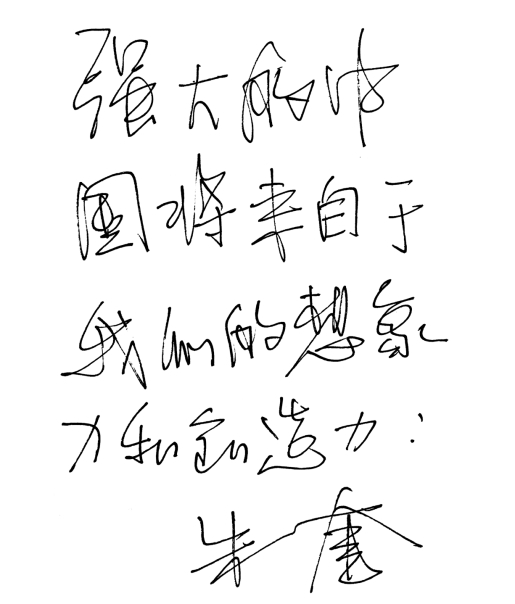 强大的中
国将来自于
我们的想象
力和创造力:
朱